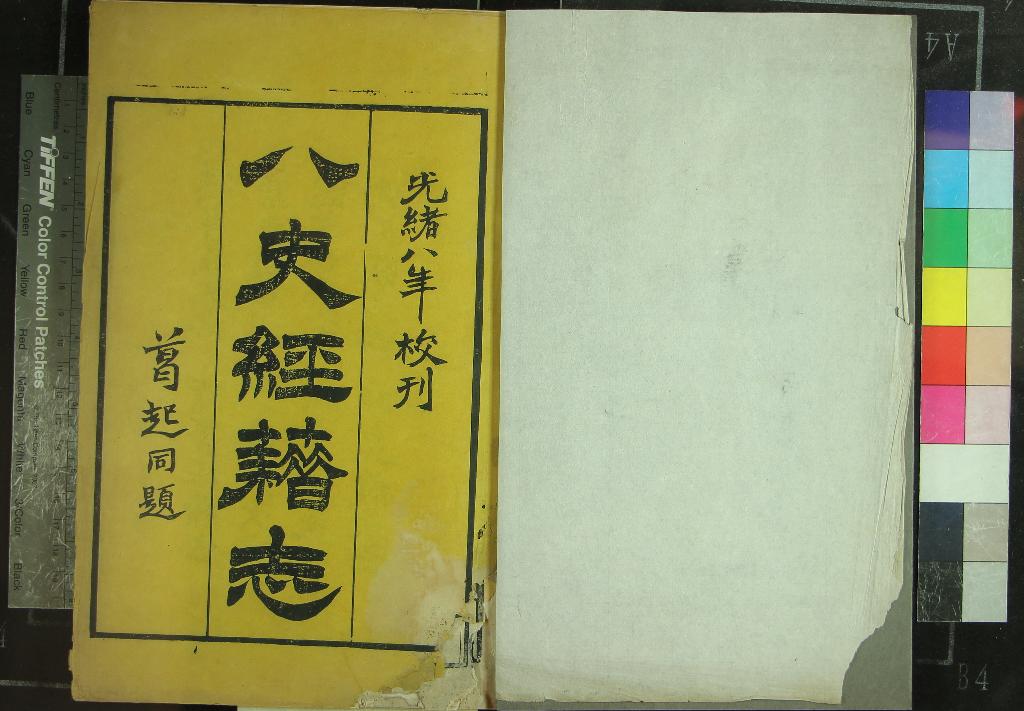 光緒八年校刊
八史經籍志
葛起同題
TIFFEN Color Control Patches
Blue Cyan Green Yellow Red Magenta White 3/Color Black
A4
B4